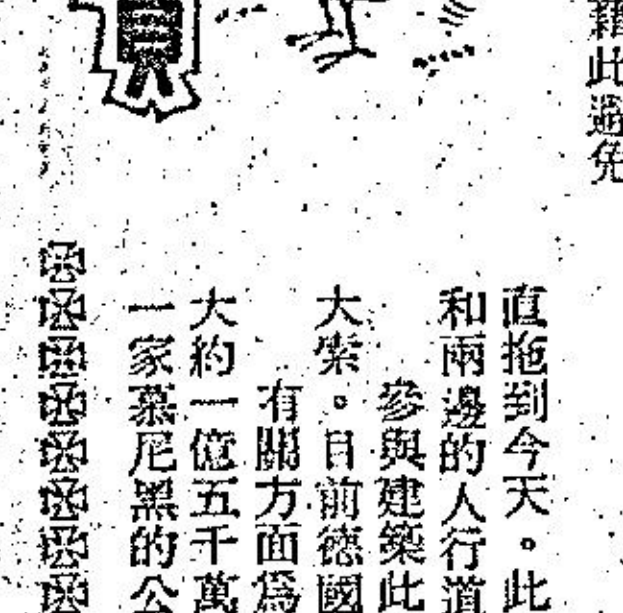 藉此避免
直拖到今天。此
和兩邊的人行道
參與建築此
大索。目前德國
有關方面爲
大約一億五千萬
一家慕尼黑的公